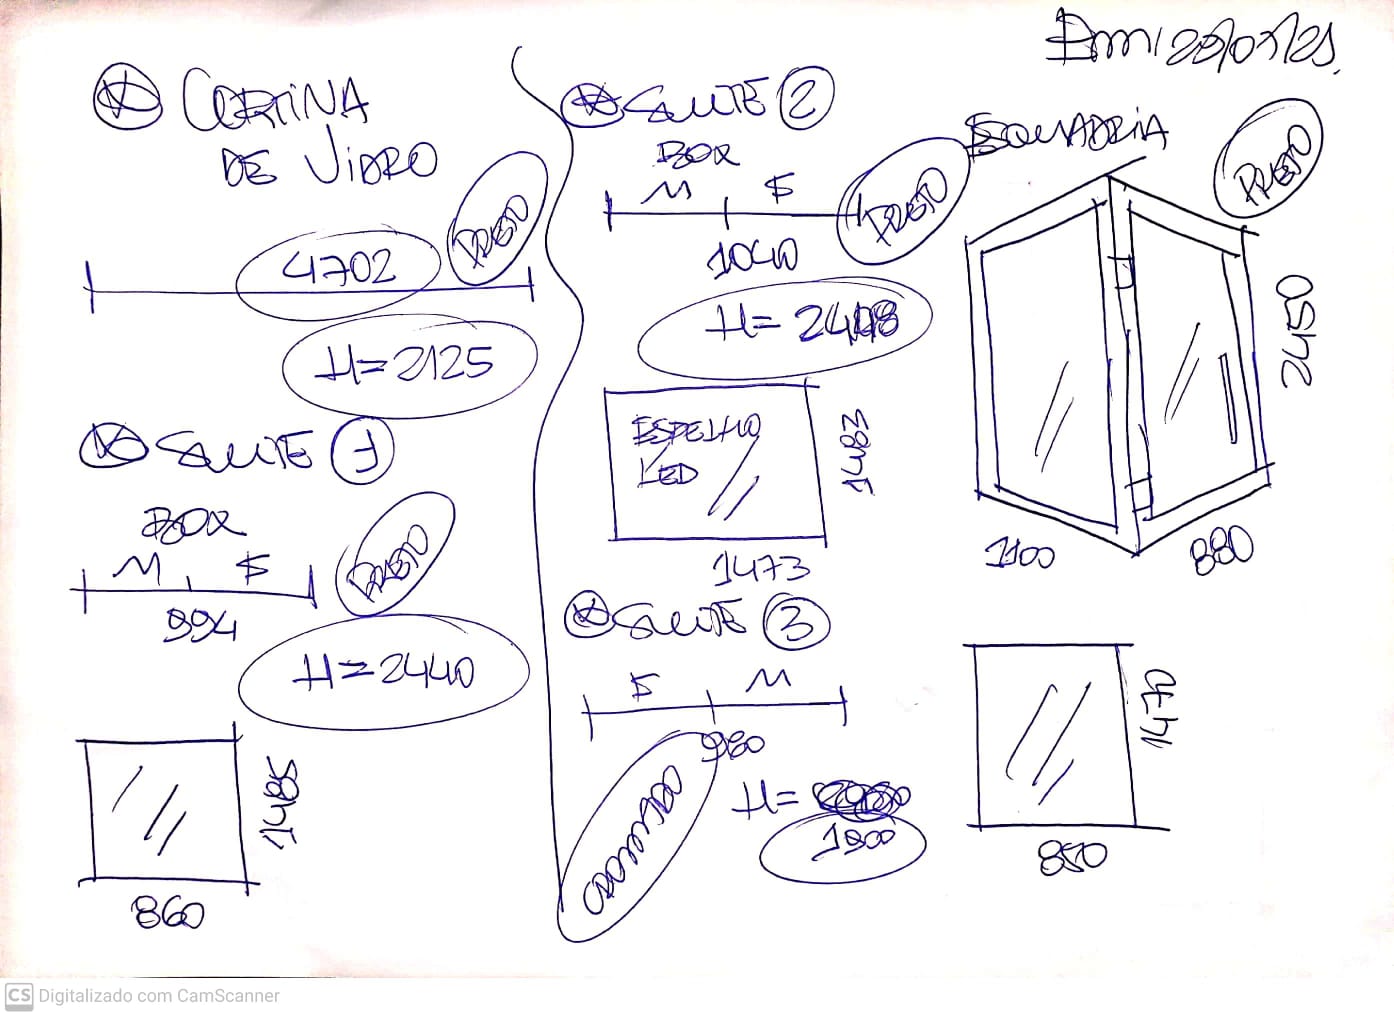 CORTINA
DE VIDRO
PRETO
4702
H=2125
SUITE 1
BOX
M F
PRETO
994
H=2440
1485
860
SUITE 2
BOX
M F
PRETO
1040
ESPELHO
LED
1483
1473
SUITE 3
F M
980
H=
1900
ESQUADRIA
PRETO
2450
1100
880
1470
850
CS Digitalizado com CamScanner